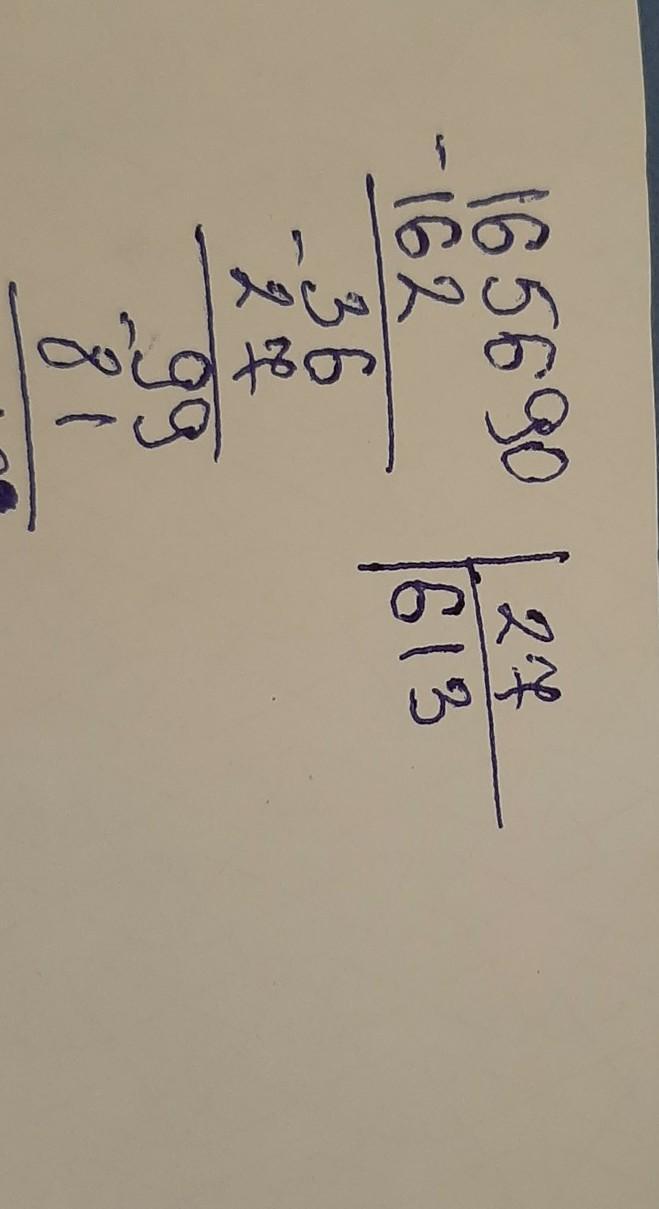 165690 27
-162 613
-36
27
-99
81